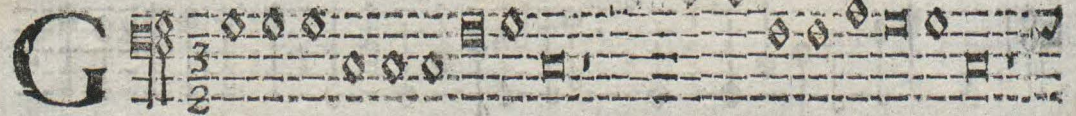 G
3
2